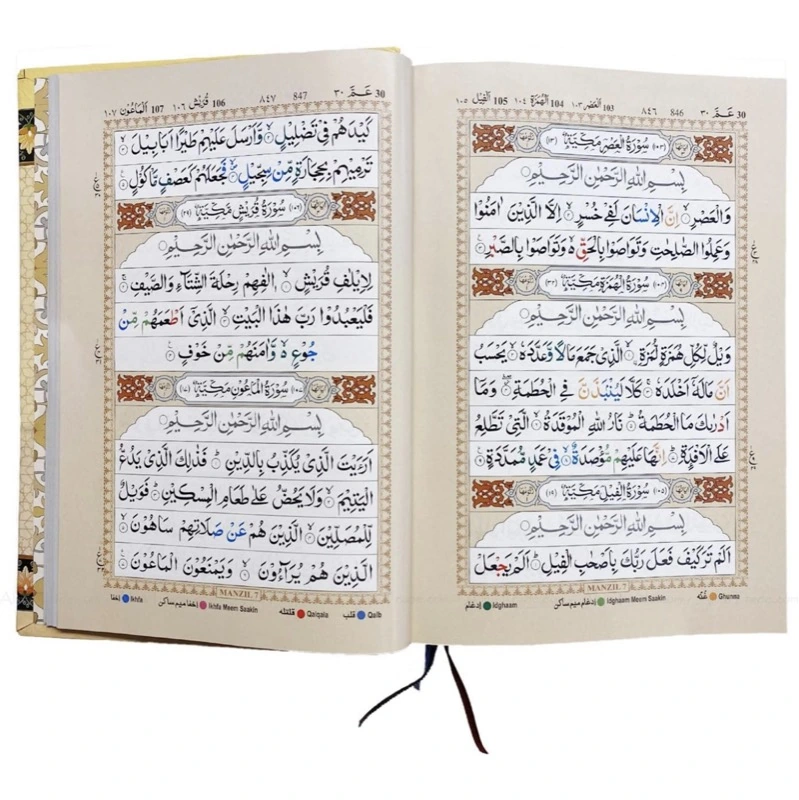 ٣٠ عَـمّ 30 846 ٨٤٦ ١٠٣ اَلْعَصْر 103 ١٠٤ اَلْهُمَزَة 104 ١٠٥ اَلْفِيْل 105
سُوْرَةُ الْعَصْرِ مَكِّيَّةٌ (١٠٣) (١٣)
بِسْمِ اللهِ الرَّحْمٰنِ الرَّحِيْمِ
وَالْعَصْرِۙ اِنَّ الْاِنْسَانَ لَفِيْ خُسْرٍۙ اِلَّا الَّذِيْنَ اٰمَنُوْا
وَعَمِلُوا الصّٰلِحٰتِ وَتَوَاصَوْا بِالْحَقِّ وَتَوَاصَوْا بِالصَّبْرِ
سُوْرَةُ الْهُمَزَةِ مَكِّيَّةٌ (١٠٤) (٣٢)
بِسْمِ اللهِ الرَّحْمٰنِ الرَّحِيْمِ
وَيْلٌ لِّكُلِّ هُمَزَةٍ لُّمَزَةٍۙ الَّذِيْ جَمَعَ مَالًا وَّعَدَّدَهٗۙ يَحْسَبُ
اَنَّ مَالَهٗٓ اَخْلَدَهٗۚ كَلَّا لَيُنْۢبَذَنَّ فِي الْحُطَمَةِۖ وَمَآ
اَدْرٰىكَ مَا الْحُطَمَةُؕ نَارُ اللهِ الْمُوْقَدَةُۙ الَّتِيْ تَطَّلِعُ
عَلَى الْاَفْـِٕدَةِؕ اِنَّهَا عَلَيْهِمْ مُّؤْصَدَةٌۙ فِيْ عَمَدٍ مُّمَدَّدَةٍ
سُوْرَةُ الْفِيْلِ مَكِّيَّةٌ (١٠٥) (١٩)
بِسْمِ اللهِ الرَّحْمٰنِ الرَّحِيْمِ
اَلَمْ تَرَ كَيْفَ فَعَلَ رَبُّكَ بِاَصْحٰبِ الْفِيْلِؕ اَلَمْ يَجْعَلْ
MANZIL 7
Idghaam اِدغام Idghaam Meem Saakin اِدغام میم ساكن Ghunna غُنّه
30 عَـمّ ٣٠ 847 ٨٤٧ 106 قُرَيْش ١٠٦ 107 اَلْمَاعُوْن ١٠٧
كَيْدَهُمْ فِيْ تَضْلِيْلٍۙ وَّاَرْسَلَ عَلَيْهِمْ طَيْرًا اَبَابِيْلَۙ
تَرْمِيْهِمْ بِحِجَارَةٍ مِّنْ سِجِّيْلٍۙ فَجَعَلَهُمْ كَعَصْفٍ مَّاْكُوْلٍ
سُوْرَةُ قُرَيْشٍ مَكِّيَّةٌ (١٠٦) (٢٩)
بِسْمِ اللهِ الرَّحْمٰنِ الرَّحِيْمِ
لِاِيْلٰفِ قُرَيْشٍۙ اٖلٰفِهِمْ رِحْلَةَ الشِّتَآءِ وَالصَّيْفِۚ
فَلْيَعْبُدُوْا رَبَّ هٰذَا الْبَيْتِۙ الَّذِيْٓ اَطْعَمَهُمْ مِّنْ
جُوْعٍ وَّاٰمَنَهُمْ مِّنْ خَوْفٍ
سُوْرَةُ الْمَاعُوْنِ مَكِّيَّةٌ (١٠٧) (١٧)
بِسْمِ اللهِ الرَّحْمٰنِ الرَّحِيْمِ
اَرَءَيْتَ الَّذِيْ يُكَذِّبُ بِالدِّيْنِؕ فَذٰلِكَ الَّذِيْ يَدُعُّ
الْيَتِيْمَۙ وَلَا يَحُضُّ عَلٰى طَعَامِ الْمِسْكِيْنِؕ فَوَيْلٌ
لِّلْمُصَلِّيْنَۙ الَّذِيْنَ هُمْ عَنْ صَلَاتِهِمْ سَاهُوْنَۙ
الَّذِيْنَ هُمْ يُرَآءُوْنَۙ وَيَمْنَعُوْنَ الْمَاعُوْنَ
MANZIL 7
Ikhfa اِخفا Ikhfa Meem Saakin اِخفا میم ساكن Qalqala قلقله Qalb قلب